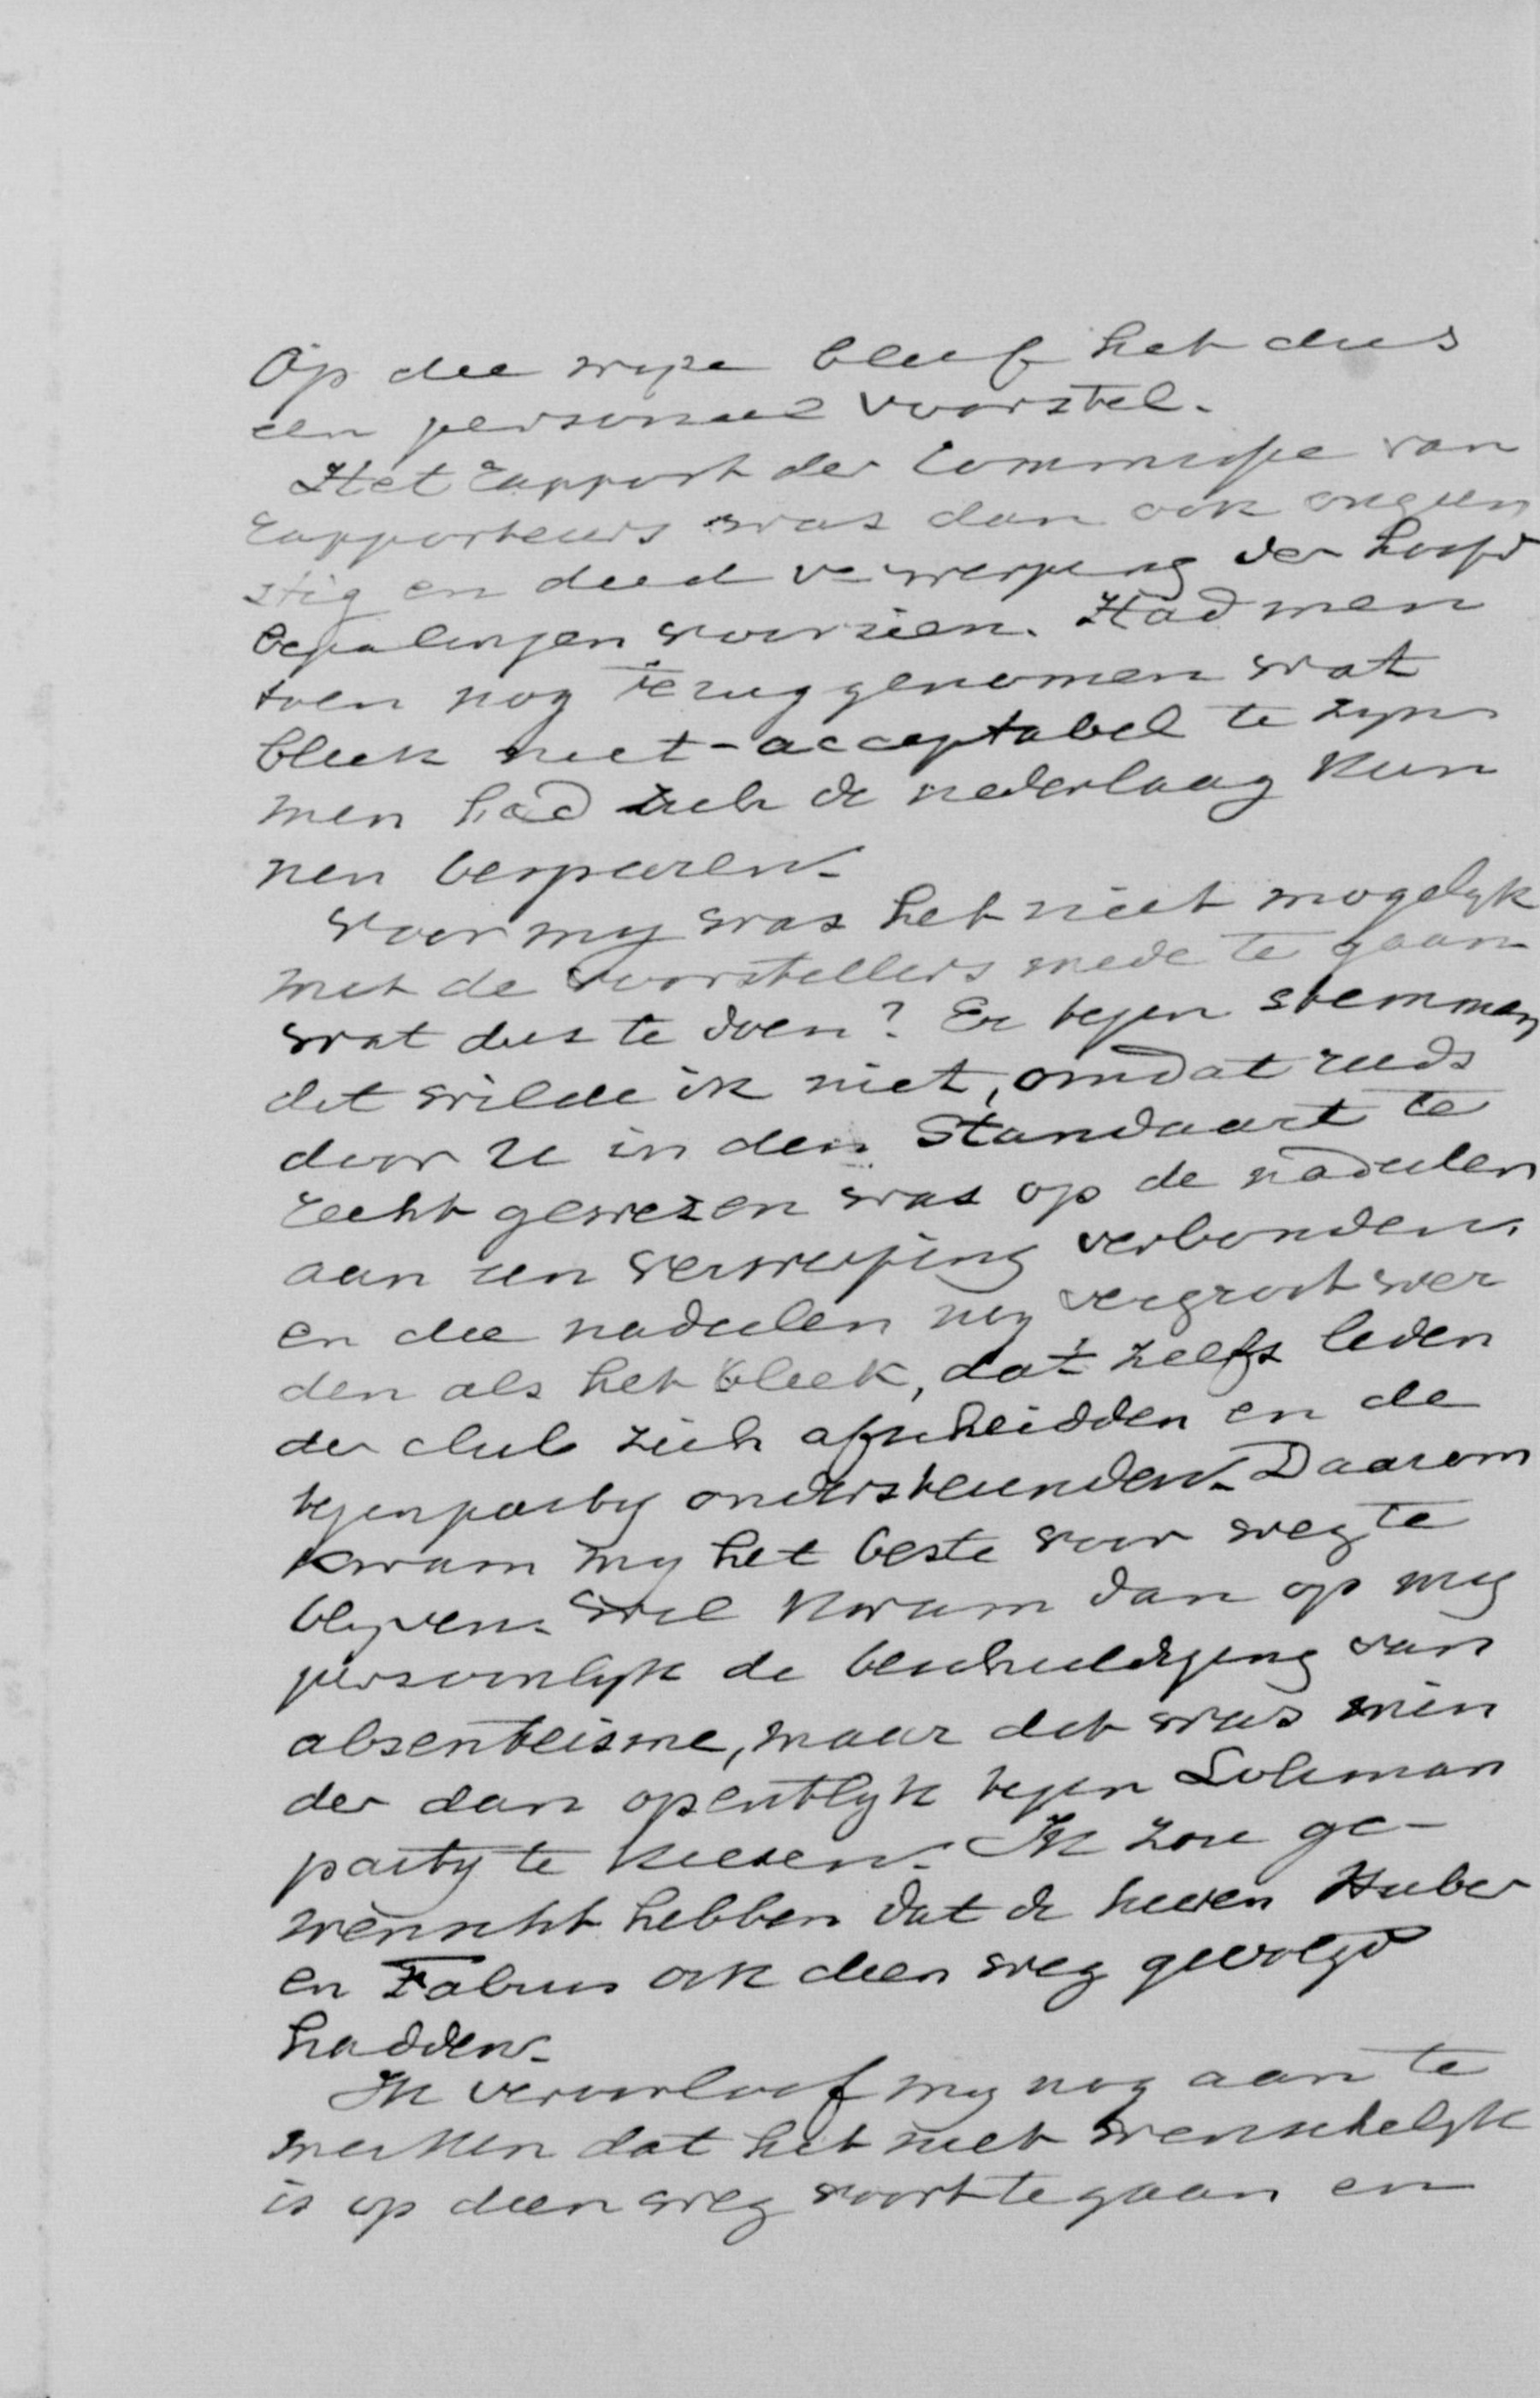 Op die wyze bleef het dus
een personeel voorstel.
Het rapport der Commissie van
rapporteurs was dan ook ongun
stig en deed verwerping der hoofd
bepalingen voorzien. Had men
toen nog teruggenomen wat
bleek niet-acceptabel te zyn
men had zich de nederlaag kun
nen besparen.
Voor my was het niet mogelyk
met de voorstellers mede te gaan
wat dus te doen? Er tegen stemmen
dit wilde ik niet, omdat reeds
door U in den Standaart te
recht gewezen was op de nadeelen
aan een verwerping verbonden.
en die nadeelen nog vergroot wer
den als het bleek, dat zelfs leden
der club zich afscheidden en de
tegenparty ondersteunden. Daarom
kwam my het beste voor weg te
blyven. Wel kwam dan op my
persoonlyk de beschuldiging van
absenteisme, maar dit was min
der dan opentlyk tegen Lohman
party te kiezen. Ik zou ge-
wenscht hebben dat de heeren Huber
en Fabius ook dien weg gevolgd
hadden.
Ik veroorloof my nog aan te
merken dat het niet wenschelyk
is op dien weg voort te gaan en